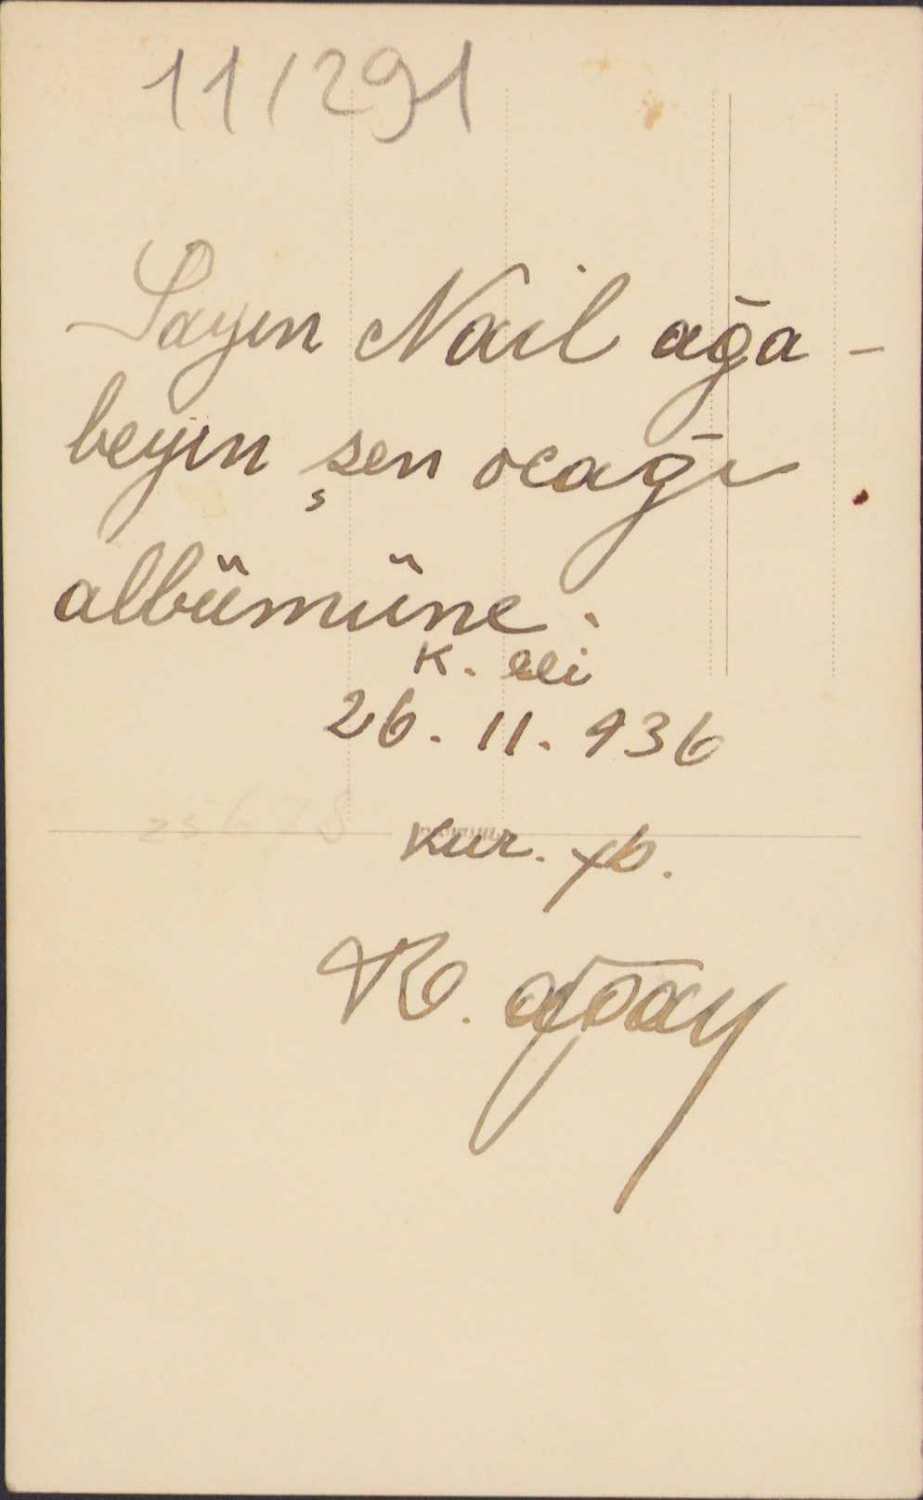 11/291
Sayın Nail ağa-
beyin şen ocağı
albümüne.
K. eli
26. 11. 936
Kur. yb.